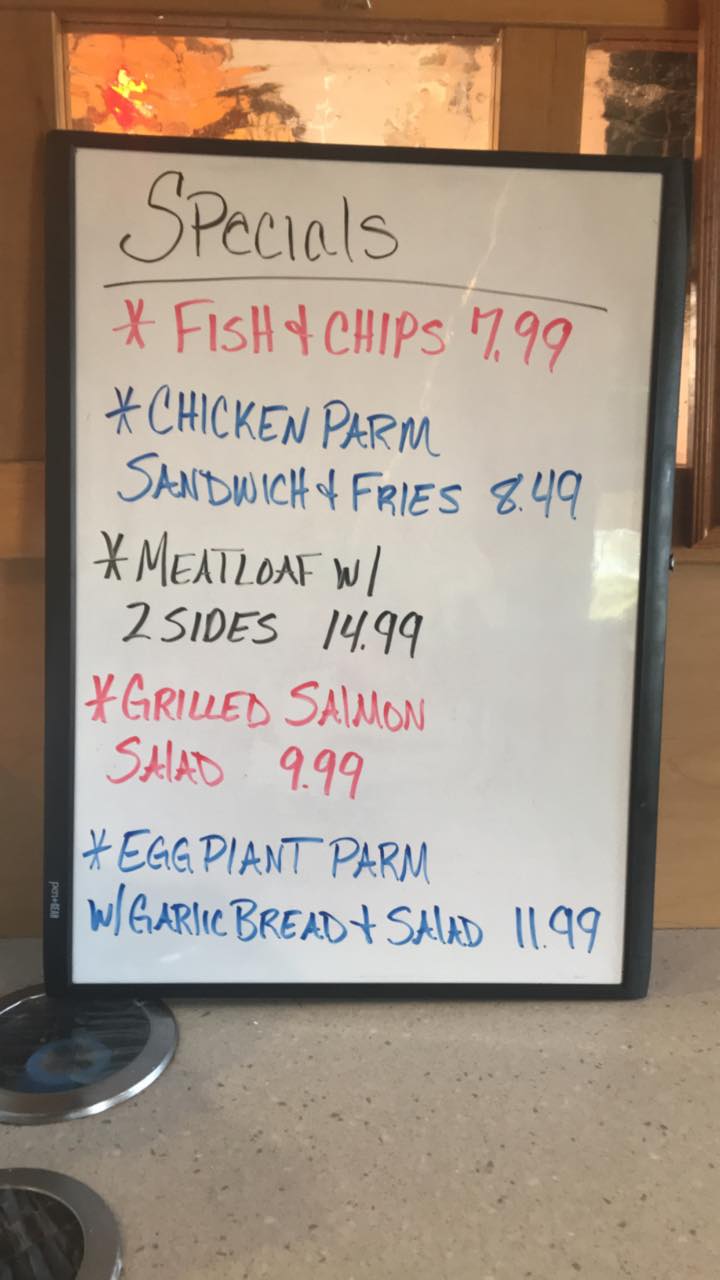 Specials
* FISH & CHIPS 7.99
* CHICKEN PARM
SANDWICH & FRIES 8.49
* MEATLOAF W/
2 SIDES 14.99
* GRILLED SAlMON
SAlAD 9.99
* EGGPlANT PARM
W/ GARlIC BREAD + SAlAD 11.99